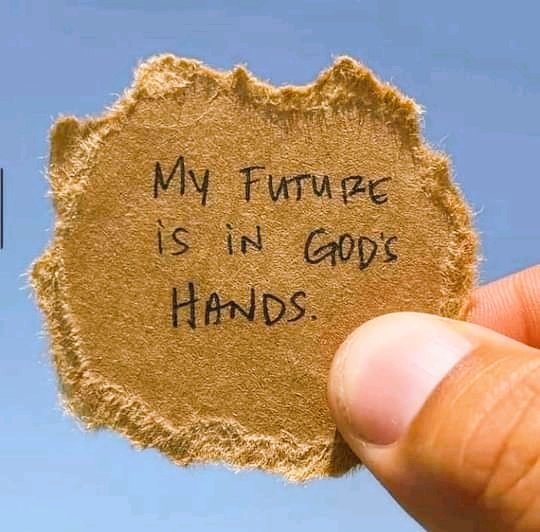 My FUTURE
iS iN GOD'S
HANDS.